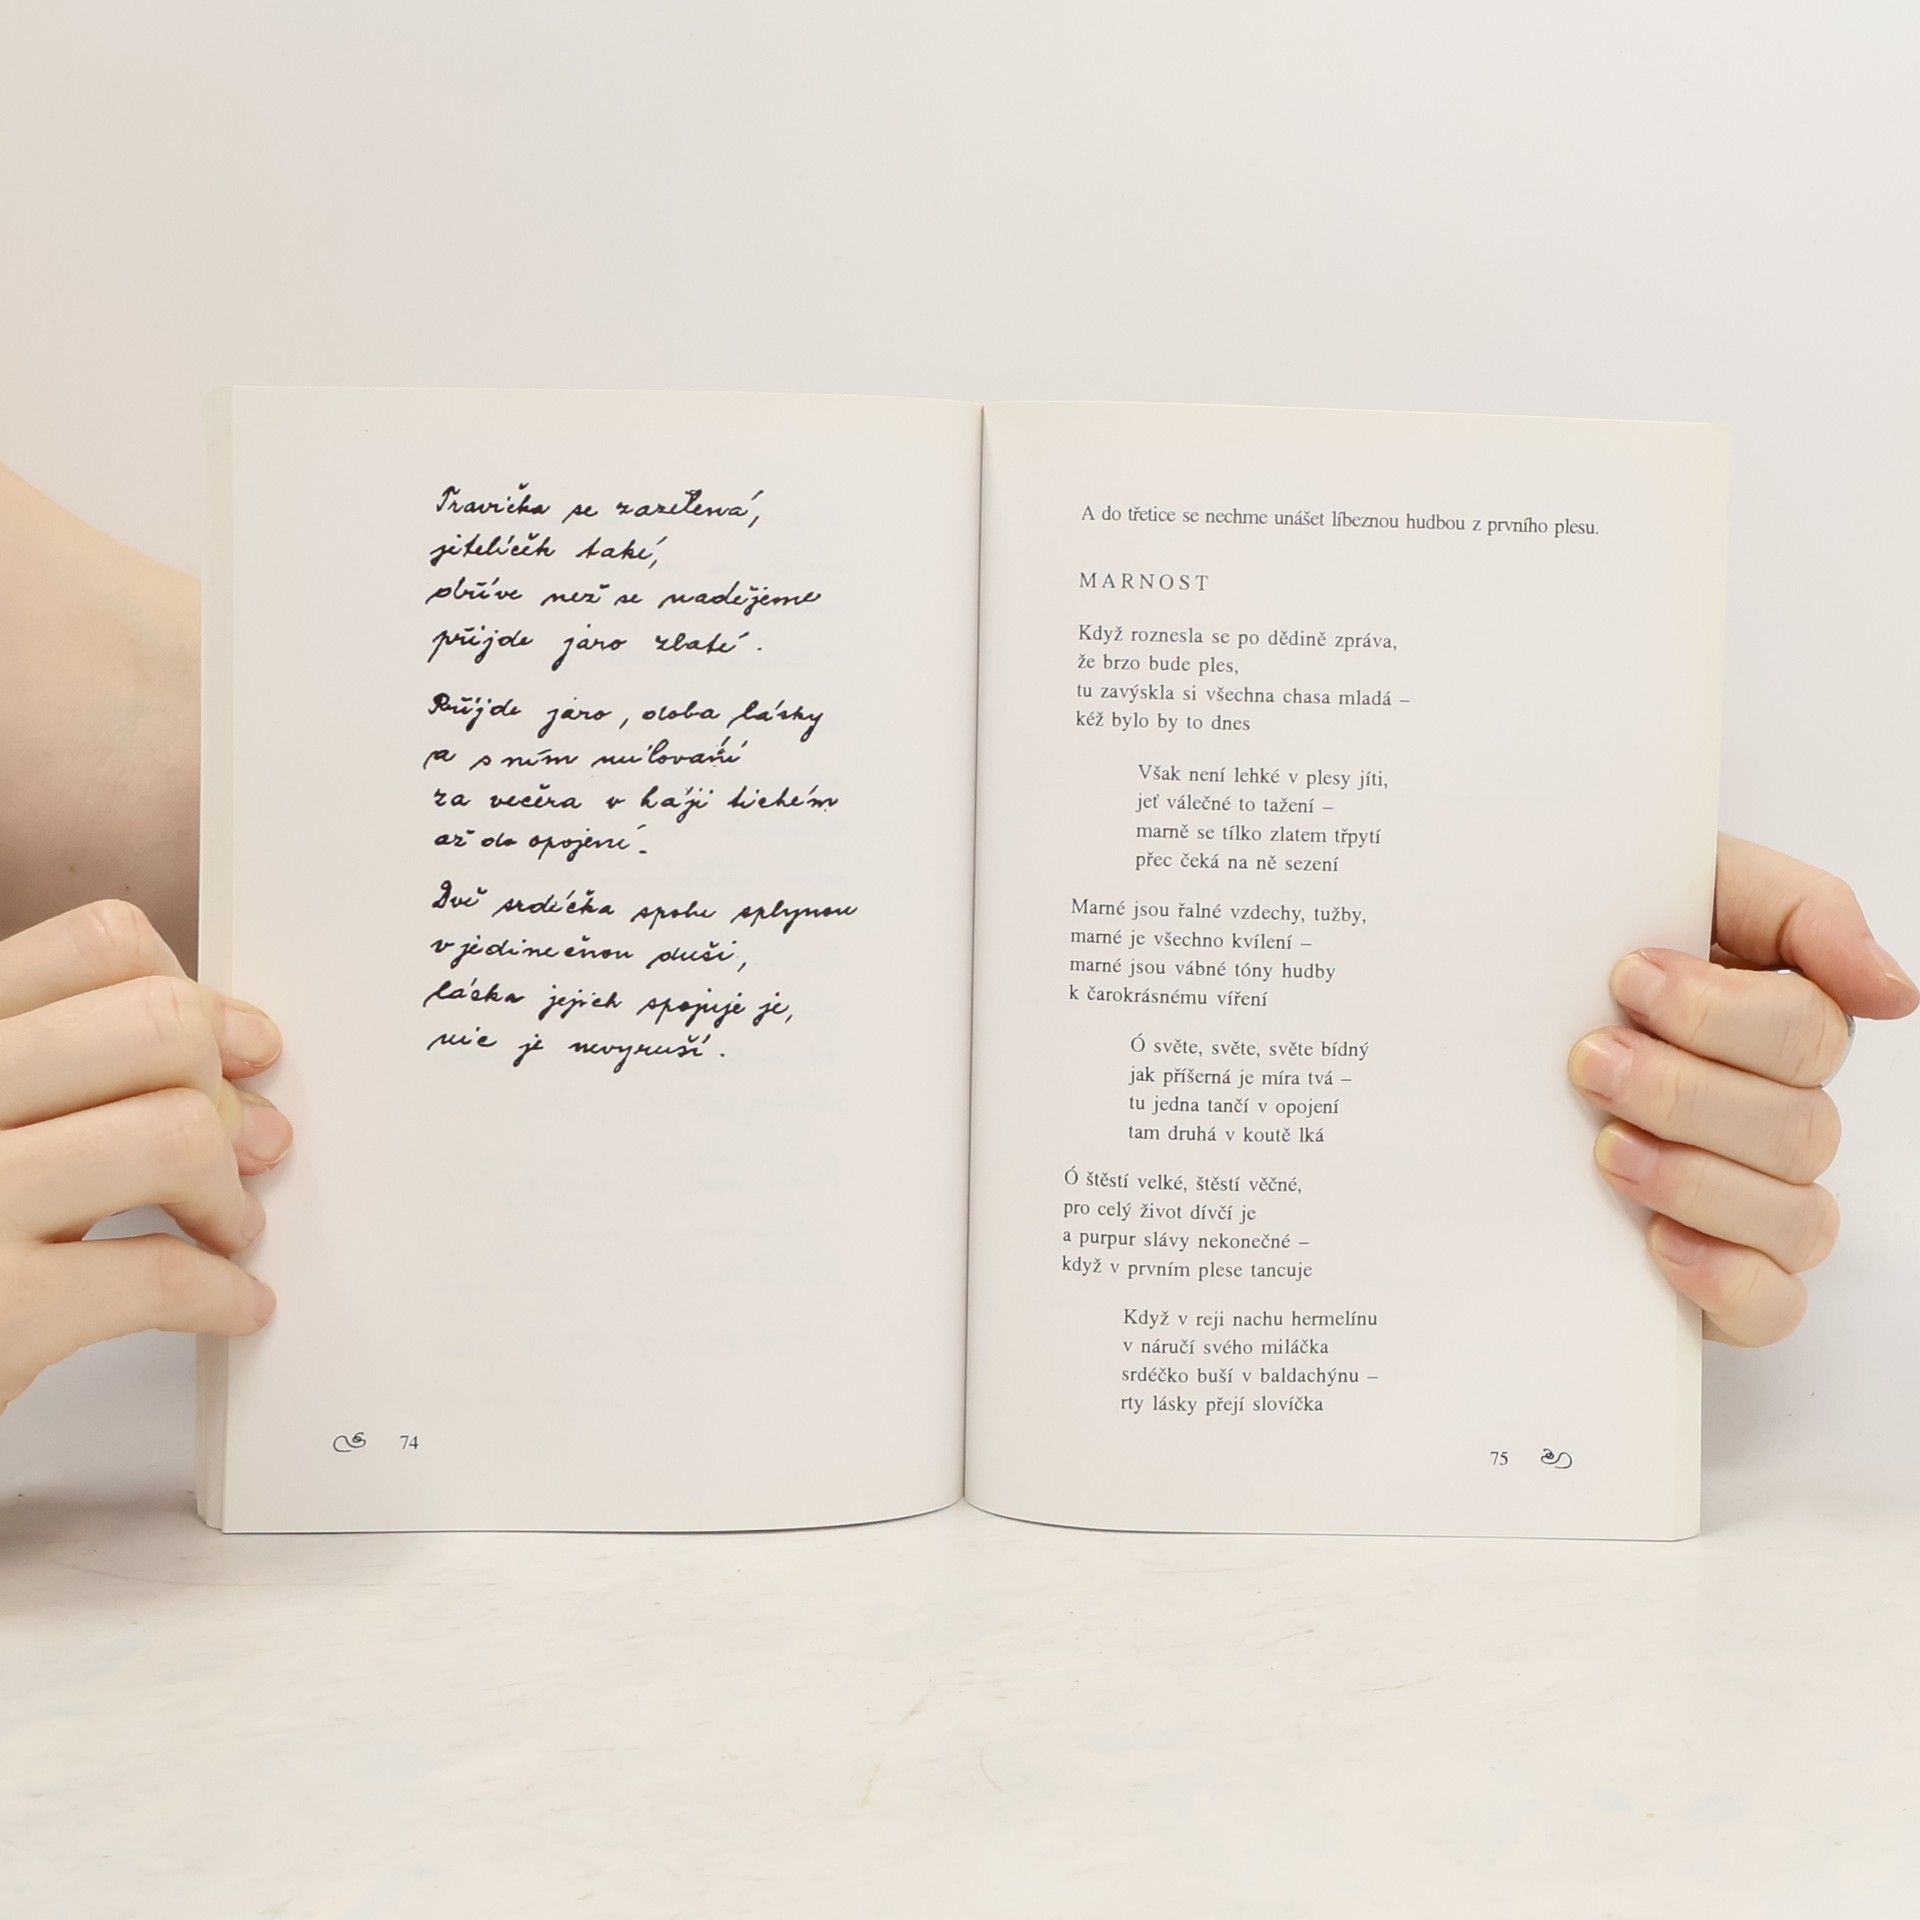 Travička se zazelená,
jitelíček také,
dříve než se nadějeme
přijde jaro zlaté.
Přijde jaro, doba lásky
a s ním milování
za večera v háji tichém
až do opojení.
Dvě srdéčka spolu splynou
v jedinečnou duši,
láska jejich spojuje je,
nic je nevyruší.
74
A do třetice se nechme unášet líbeznou hudbou z prvního plesu.
MARNOST
Když roznesla se po dědině zpráva,
že brzo bude ples,
tu zavýskla si všechna chasa mladá –
kéž bylo by to dnes
Však není lehké v plesy jíti,
jeť válečné to tažení –
marně se tílko zlatem třpytí
přec čeká na ně sezení
Marné jsou řalné vzdechy, tužby,
marné je všechno kvílení –
marné jsou vábné tóny hudby
k čarokrásnému víření
Ó světe, světe, světe bídný
jak příšerná je míra tvá –
tu jedna tančí v opojení
tam druhá v koutě lká
Ó štěstí velké, štěstí věčné,
pro celý život dívčí je
a purpur slávy nekonečné –
když v prvním plese tancuje
Když v reji nachu hermelínu
v náručí svého miláčka
srdéčko buší v baldachýnu –
rty lásky přejí slovíčka
75